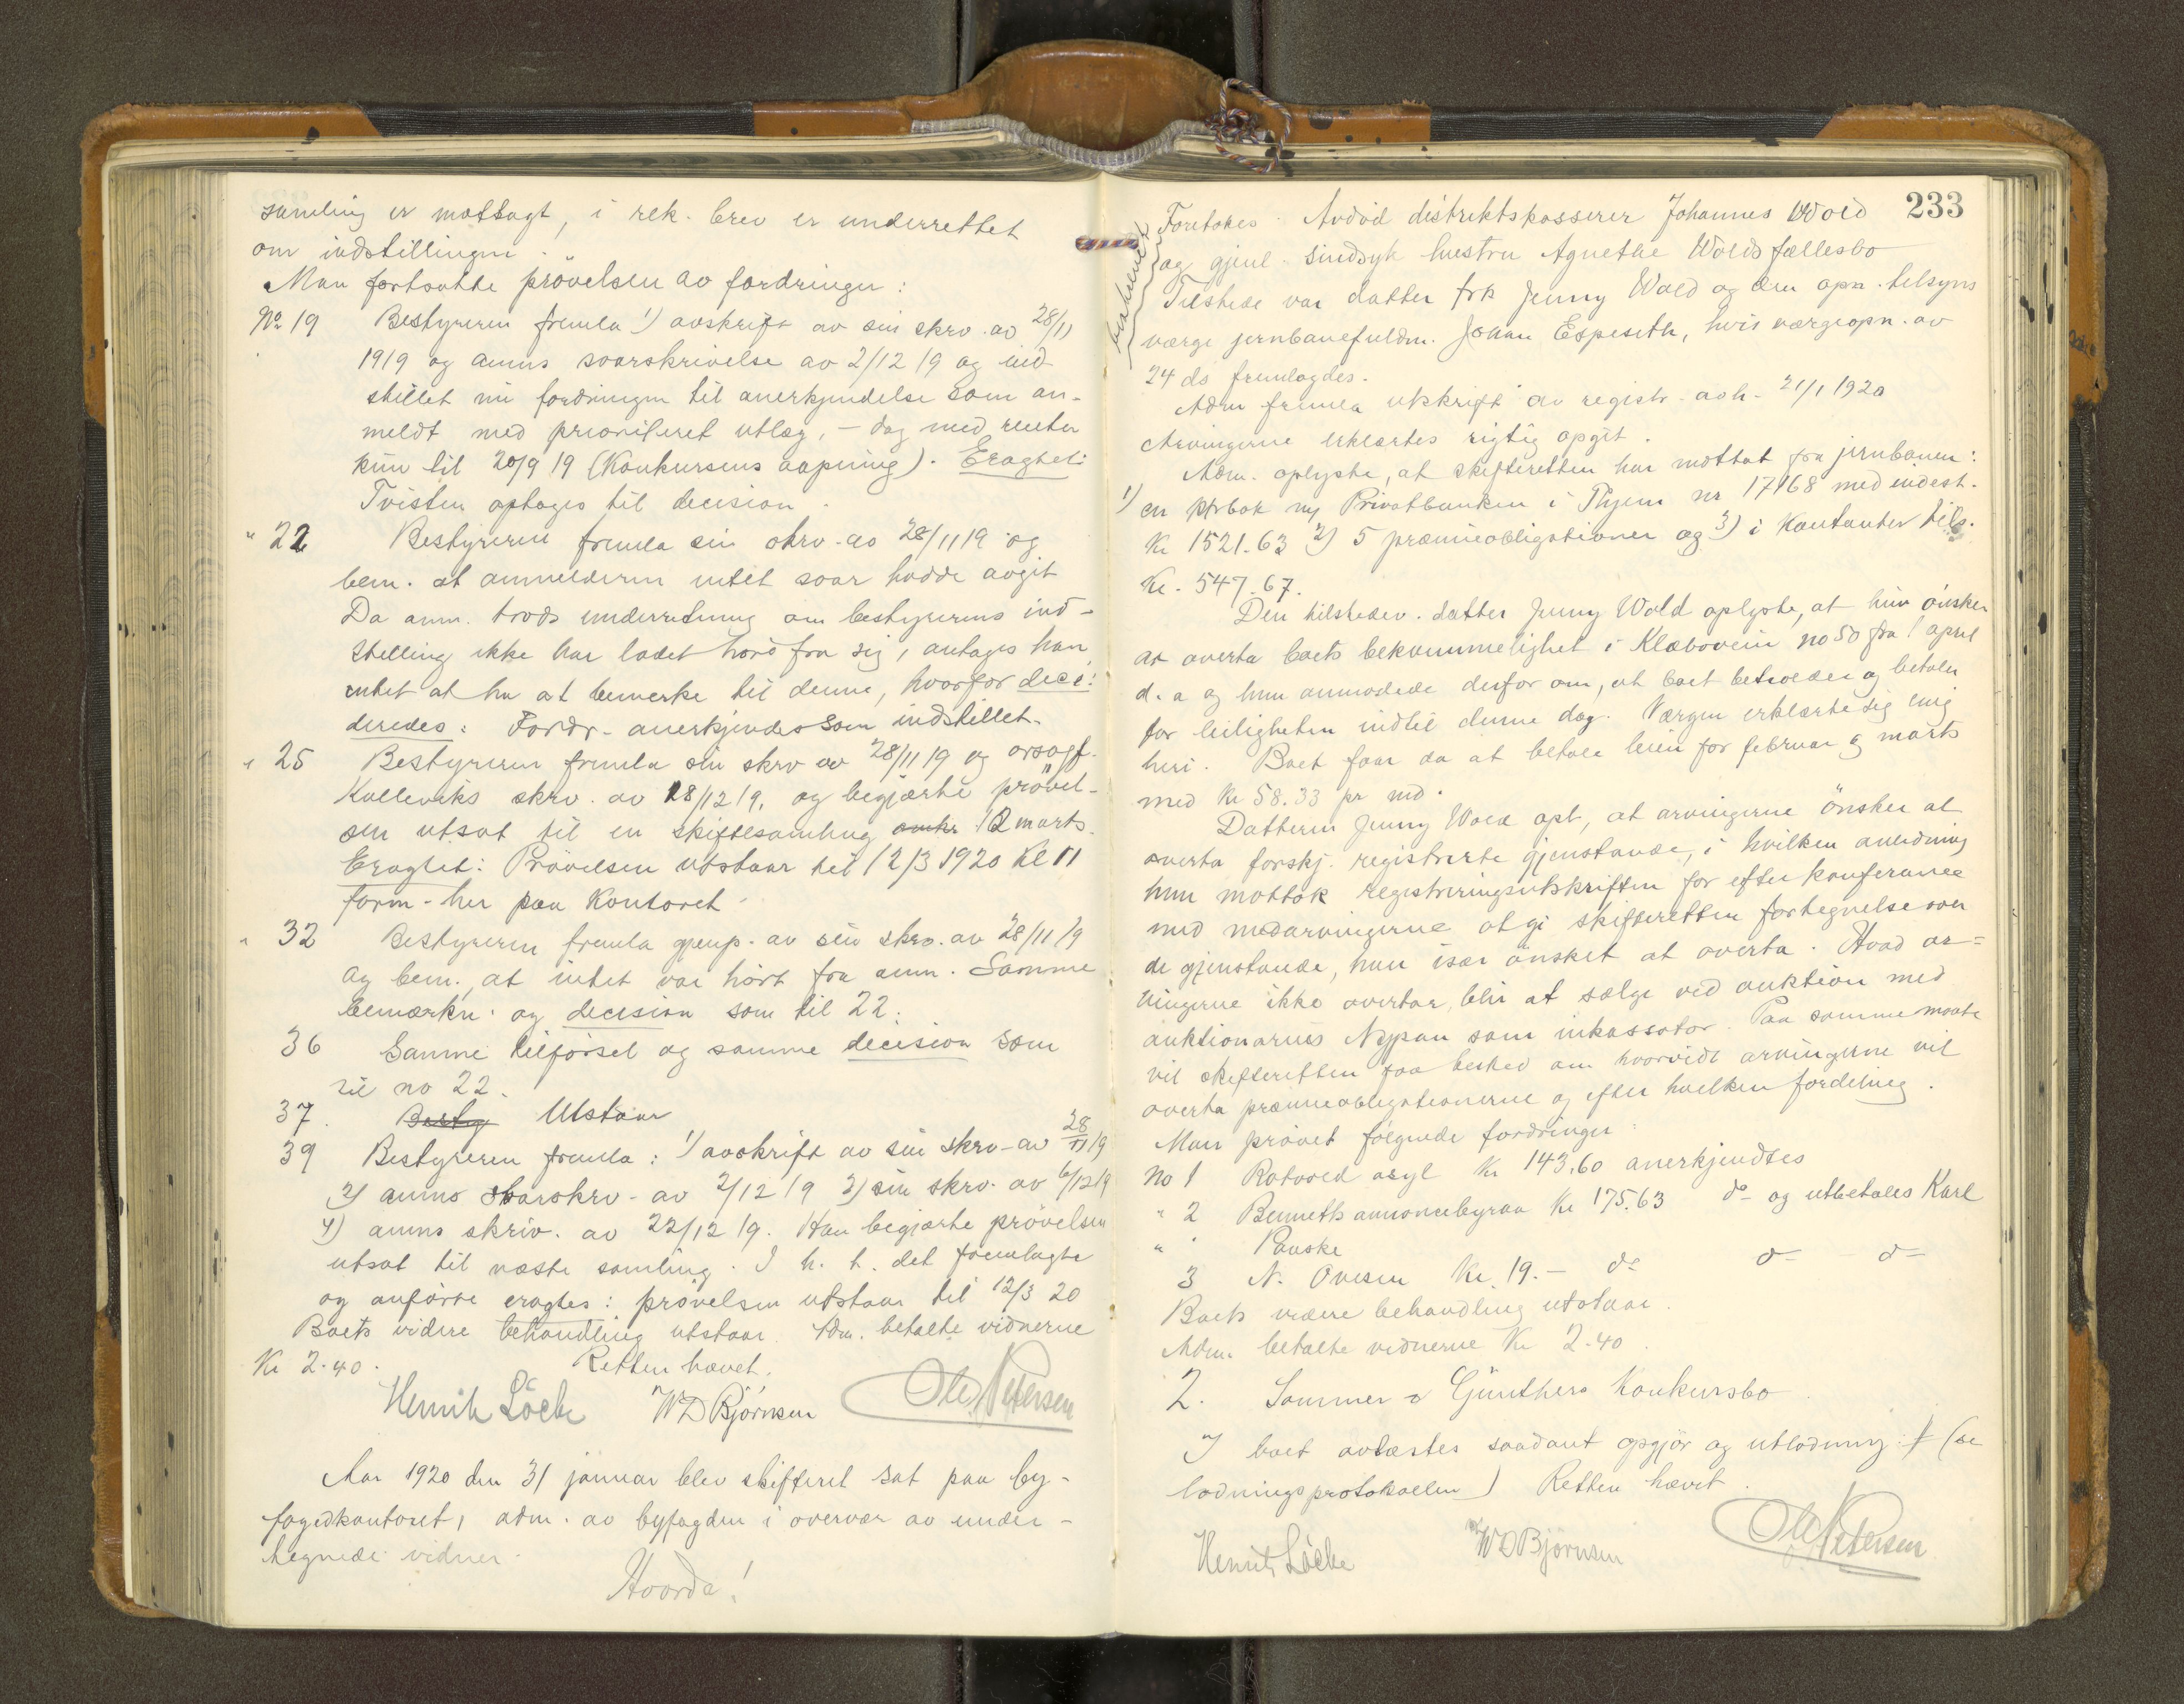 samling er mottagt, i rek. brev er underrettet
om indstillingen.
Man fortsatte prövelsen av fordringer:
No 19 Bestyreren fremla 1) avskrift av sin skrv. av 28/11
1919 og anms svarskrivelse av 2/12 19 og ind-
stillet nu fordringen til anerkjendelse som an-
meldt med prioriteret utlæg, – dog med renter
kun til 20/9 19 (Konkursens aapning). Eragtet:
Tvisten optages til decision.
" 22 Bestyreren fremla sin skrv. av 28/11 19 og
bem. at anmelderen intet svar hadde avgit
Da anm. trods underretning om bestyrerens ind-
stilling ikke har ladet höre fra sig, antages han
intet at ha at bemerke til denne, hvorfor deci:
deredes: Fordr. anerkjendes som indstillet.
" 25 Bestyreren fremla sin skrv av 28/11 19 og orsagf.
Kulleviks skrv. av 18/12 19, og begjærte prövel-
sen utsat til en skiftesamling omkr 12 marts.
Eragtet: Prövelsen utstaar til 12/3 1920 Kl 11
form. her paa Kontoret.
" 32 Bestyreren fremla gjenp. av sin skrv. av 28/11 19
og bem., at intet var hört fra anm. Samme
bemærkn. og decision som til 22.
36 Samme tilförsel og samme decision som
til no 22.
37. Besty Utstaar
39 Bestyreren fremla: 1) avskrift av sin skrv. av 28/11 19
2) anms svarskrv. av 2/12 19 3) sin skrv. av 6/12 19
4) anms skriv. av 22/12 19. Han begjærte prövelsen
utsat til næste samling. I h. t. det fremlagte
og anförte eragtes: prövelsen utstaar til 12/3 20
Boets videre behandling utstaar. Adm. betalte vidnerne
Kr 2.40. Retten hævet.
Henrik Löcke WD Björnsen Ole Petersen
Aar 1920 den 31 januar blev skifteret sat paa by-
fogedkontoret, adm. av byfogden i overvær av under-
tegnede vidner.
Hvorda!
233
Foretokes Avdöd distriktskasserer Johannes Wold
og gjenl. sindsyk hustru Agnethe Wolds fællesbo
Tilstede var datter frk Jenny Wold og den opn. tilsyns
værge jernbanefuldm. Johan Espeseth, hvis værgeopn. av
24 ds fremlagdes.
Adm fremla utskrift av registr. avh. 21/1 1920
Arvingerne erklærtes rigtig opgit.
Adm. oplyste, at skifteretten har mottat fra jernbanen:
1) en ktrbok m/ Privatbanken i Thjem nr 17168 med indest.
Kr 1521.63 2) 5 præmieobligationer og 3) i Kontanter tils.
Kr. 547.67.
Den tilstedev. datter Jenny Wold oplyste, at hun önsker
at overta boets bekvemmelighet i Klæboveien no 50 fra 1 april
d. a og hun anmodede derfor om, at boet beholder og betaler
for leiligheten indtil denne dag. Værgen erklærte sig enig
heri. Boet faar da at betale leien for februar og marts
med Kr 58.33 pr md.
Datteren Jenny Wold opl., at arvingerne önsker at
overta forskj. registrerte gjenstande, i hvilken anledning
hun mottok registreringsutskriften for efter konferance
med medarvingerne at gi skifteretten fortegnelse over
de gjenstande, hun især önsket at overta. Hvad ar-
vingerne ikke overtar, blir at sælge ved auktion med
auktionarius Nypan som inkassator. Paa samme maate
vil skifteretten faa besked om hvorvidt arvingerne vil
overta præmieobligationerne og efter hvilken fordeling.
Man prövet fölgende fordringer:
No 1 Rotvold asyl Kr 143.60 anerkjendtes
" 2 Bennetts annoncebyraa Kr 175.63 do og utbetales Karl
" " Pauske
3 N. Ovesen Kr. 19.– do do do
Boets videre behandling utstaar.
Adm. betalte vidnerne Kr 2.40.
2. Sommer & Günthers Konkursbo.
I boet avlæstes saadant opgjör og utlodning: (se
lodningsprotokollen) Retten hævet.
Henrik Löcke WD Björnsen Ole Petersen